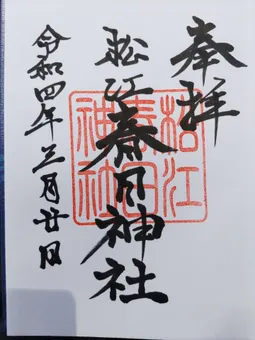 奉拝
松江春日神社
松江春日神社
令和四年三月廿日